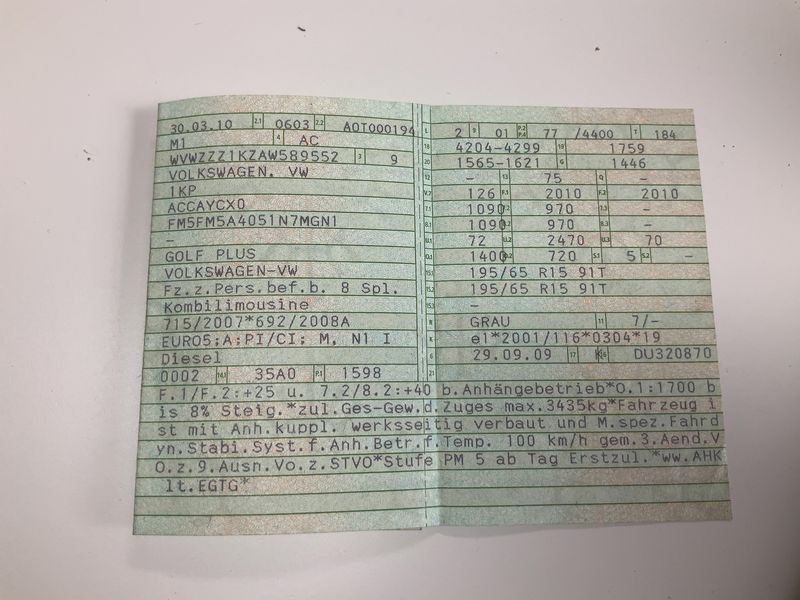 30.03.10 2.1 0603 2.2 AOT000194
M1 4 AC
WVWZZZ1KZAW589552 3 9
VOLKSWAGEN. VW
1KP
ACCAYCX0
FM5FM5A4051N7MGN1
–
GOLF PLUS
VOLKSWAGEN-VW
Fz.z.Pers.bef.b. 8 Spl.
Kombilimousine
715/2007*692/2008A
EURO5;A;PI/CI; M, N1 I
Diesel
0002 14.1 35A0 P.1 1598
L 2 9 01 P.2 P.4 77 /4400 T 184
18 4204-4299 19 1759
20 1565-1621 G 1446
12 – 13 75 Q –
V.7 126 F.1 2010 F.2 2010
7.1 1090 7.2 970 7.3 –
8.1 1090 8.2 970 8.3 –
U.1 72 U.2 2470 U.3 70
O.1 1400 O.2 720 S.1 5 S.2 –
15.1 195/65 R15 91T
15.2 195/65 R15 91T
15.3 –
R GRAU 11 7/-
K e1*2001/116*0304*19
6 29.09.09 17 K 16 DU320870
21
F.1/F.2:+25 u. 7.2/8.2:+40 b.Anhängebetrieb*O.1:1700 b
is 8% Steig.*zul.Ges-Gew.d.Zuges max.3435kg*Fahrzeug i
st mit Anh.kuppl. werksseitig verbaut und M.spez.Fahrd
yn.Stabi.Syst.f.Anh.Betr.f.Temp. 100 km/h gem.3.Aend.V
O.z.9.Ausn.Vo.z.STVO*Stufe PM 5 ab Tag Erstzul.*ww.AHK
lt.EGTG*